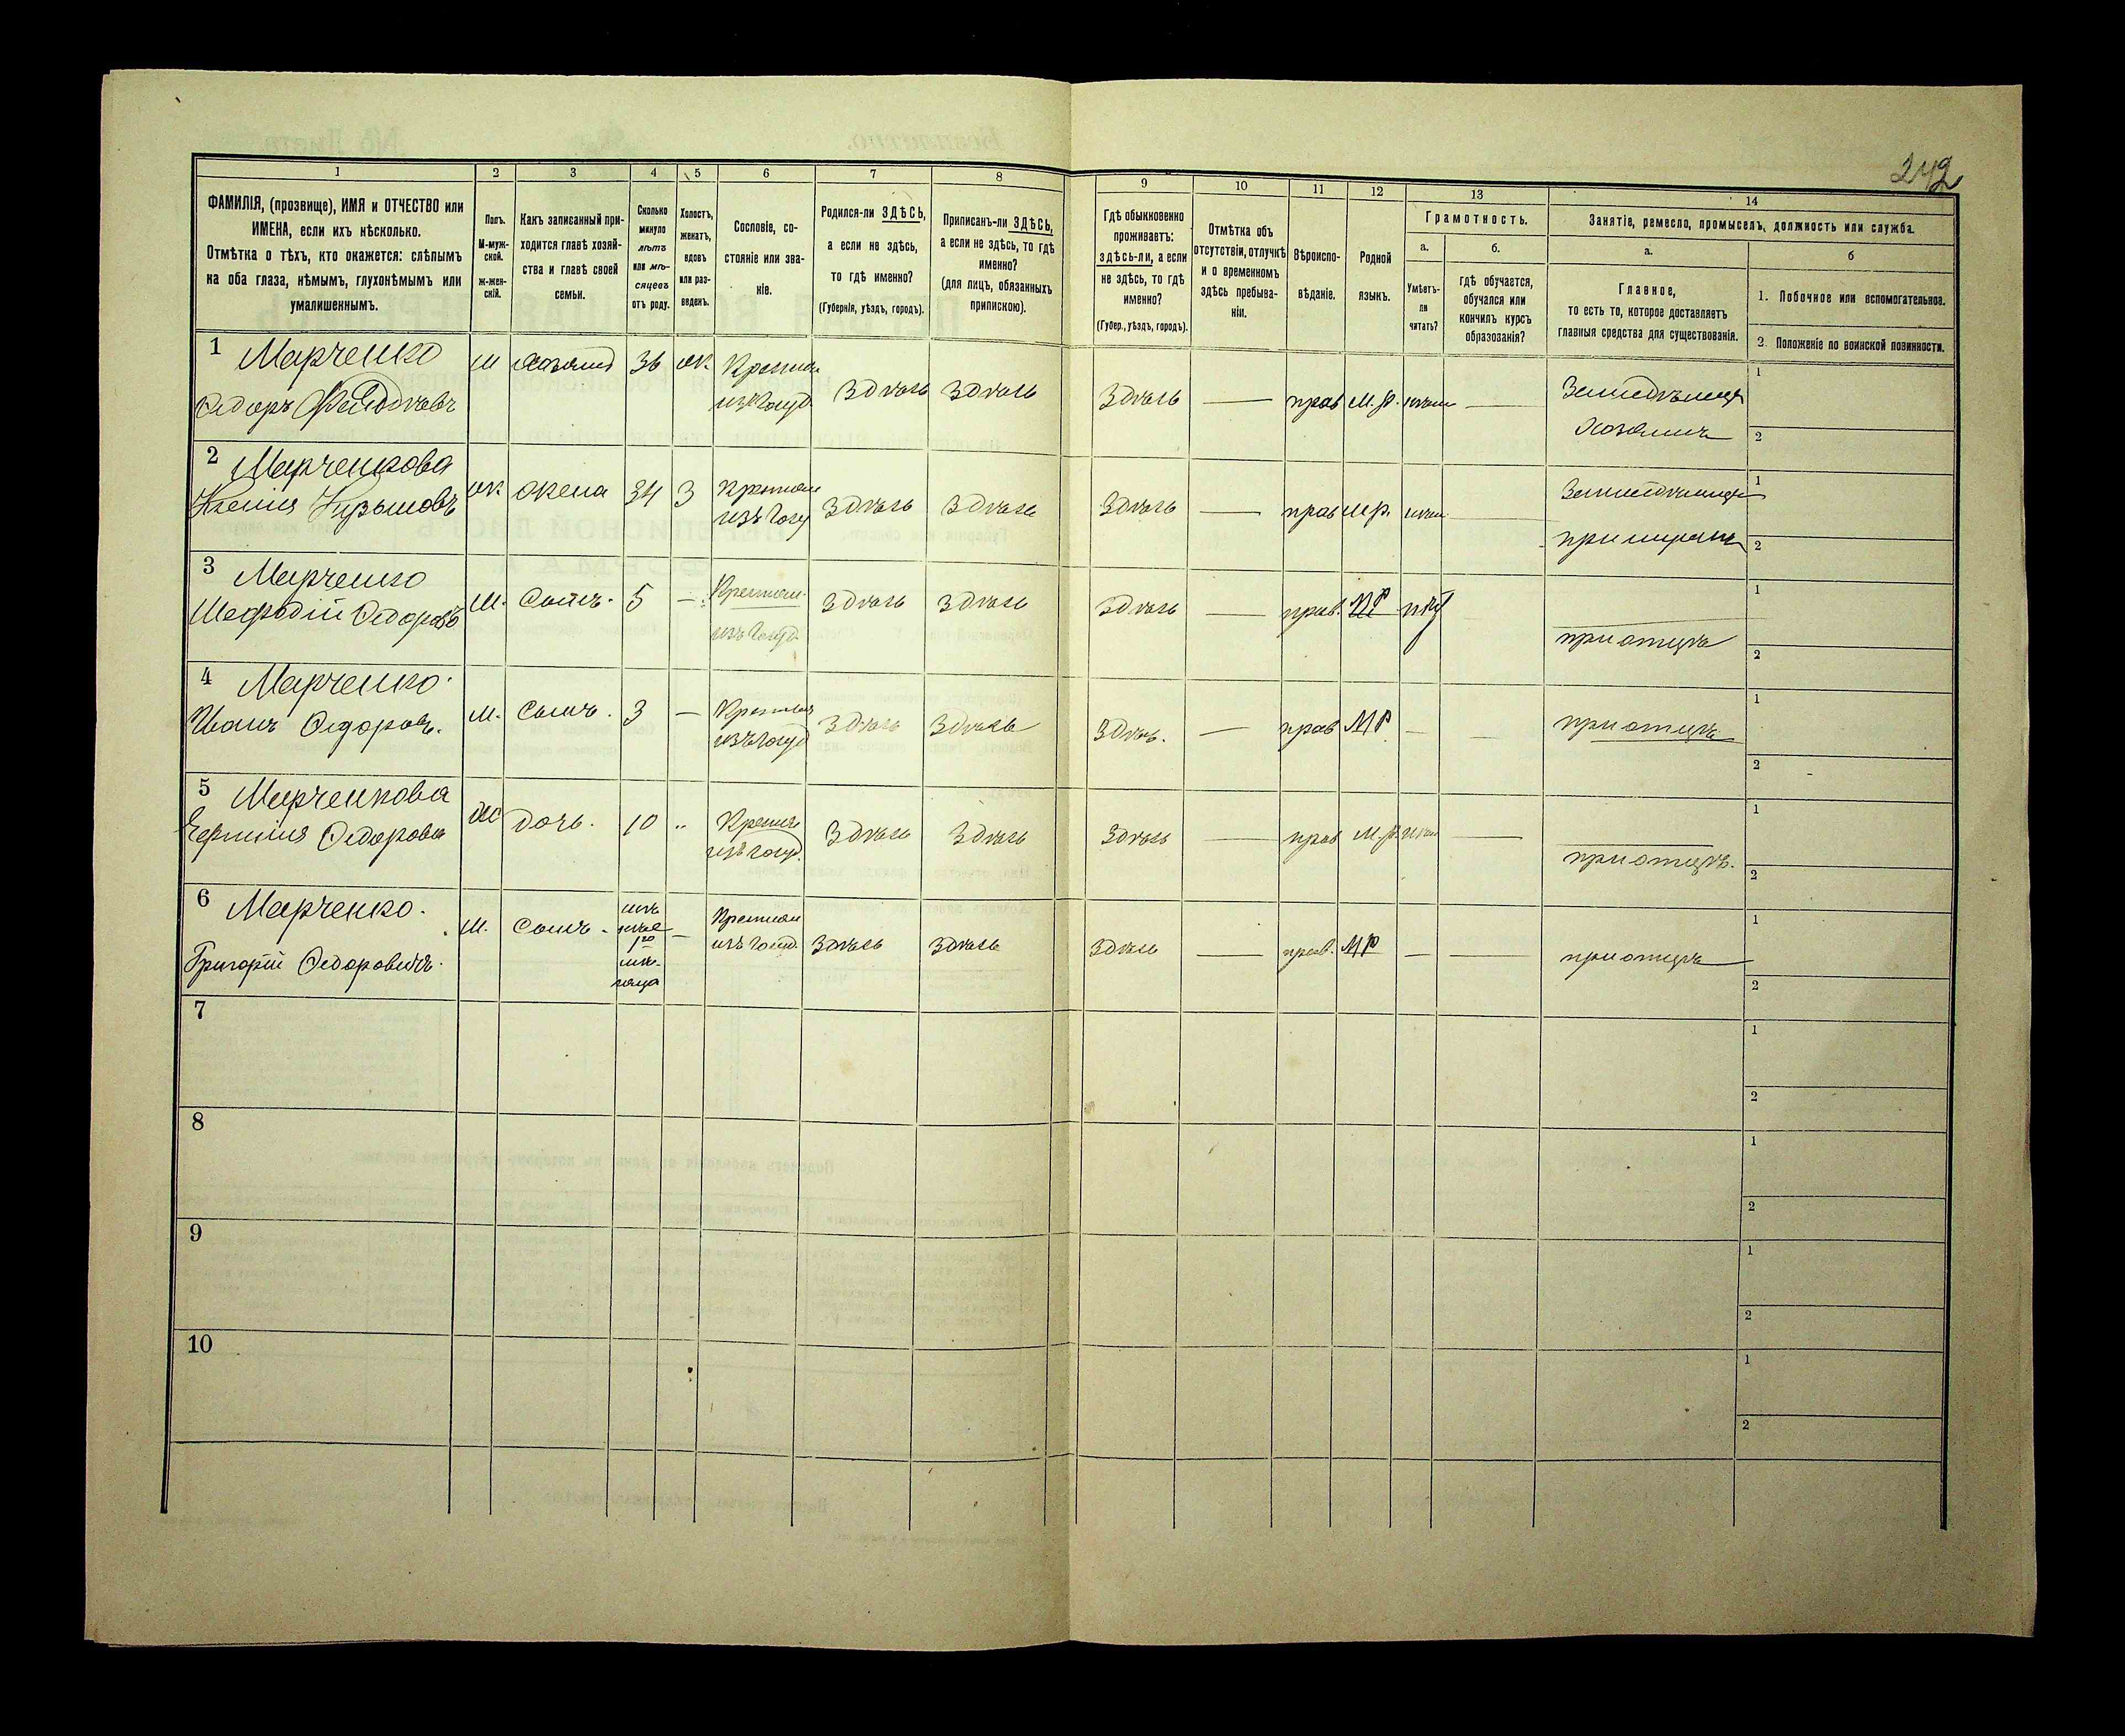 242
1
2
3
4
5
6
7
8
9
10
11
12
13
14
ФАМИЛІЯ, (прозвище), ИМЯ и ОТЧЕСТВО или
ИМЕНА, если ихъ нѣсколько.
Отмѣтка о тѣхъ, кто окажется: слѣпымъ
на оба глаза, нѣмымъ, глухонѣмымъ или
умалишеннымъ.
Полъ.
М-муж-
ской.
ж-жен-
скій.
Какъ записанный при-
ходится главѣ хозяй-
ства и главѣ своей
семьи.
Сколько
минуло
лѣтъ
или мѣ-
сяцевъ
отъ роду.
Холостъ,
женатъ,
вдовъ
или раз-
веденъ.
Сословіе, со-
стояніе или зва-
ніе.
Родился-ли ЗДѢСЬ,
а если не здѣсь,
то гдѣ именно?
(Губернія, уѣздъ, городъ).
Приписанъ-ли ЗДѢСЬ,
а если не здѣсь, то гдѣ
именно?
(для лицъ, обязанныхъ
припискою).
Гдѣ обыкновенно
проживаетъ:
здѣсь-ли, а если
не здѣсь, то гдѣ
именно?
(Губер., уѣздъ, городъ).
Отмѣтка объ
отсутствіи, отлучкѣ
и о временномъ
здѣсь пребыва-
ніи.
Вѣроиспо-
вѣданіе.
Родной
языкъ.
Грамотность.
а.
Умѣетъ-
ли
читать?
б.
гдѣ обучается,
обучался или
кончилъ курсъ
образованія?
Занятіе, ремесло, промыселъ, должность или служба.
а.
Главное,
то есть то, которое доставляетъ
главныя средства для существованія.
б
1. Побочное или вспомогательное.
2. Положеніе по воинской повинности.
1 Марченко
Ѳедоръ
М Хозяинъ 36 ж. Крестьян
изъ госуд. здѣсь здѣсь здѣсь — прав М.р. —
Хозяинъ
1
2
2 Марченкова
Ксенія
ж жена 34 з Крестьян
изъ госу здѣсь здѣсь здѣсь — прав м.р.
1
2
3 Марченко
Мефодій Ѳедоровъ
м. Сынъ. 5 — Крестьян.
изъ госуд. здѣсь здѣсь здѣсь — прав. МР
при отцѣ
1
2
4 Марченко.
Иванъ Ѳедоровъ.
м. Сынъ. 3 — Крестьян
изъ госуд здѣсь здѣсь здѣсь. — прав МР — — при отцѣ
1
2
5 Марченкова
Ѳедорова
ж дочь. 10 „ Крестьян
изъ госуд. здѣсь здѣсь здѣсь — прав м.р. —
при отцѣ.
1
2
6 Марченко.
Григорій Ѳедоровичъ.
м. Сынъ. — Крестьян
изъ госуд. здѣсь здѣсь здѣсь — прав. МР — — при отцѣ
1
2
7
1
2
8
1
2
9
1
2
10
1
2